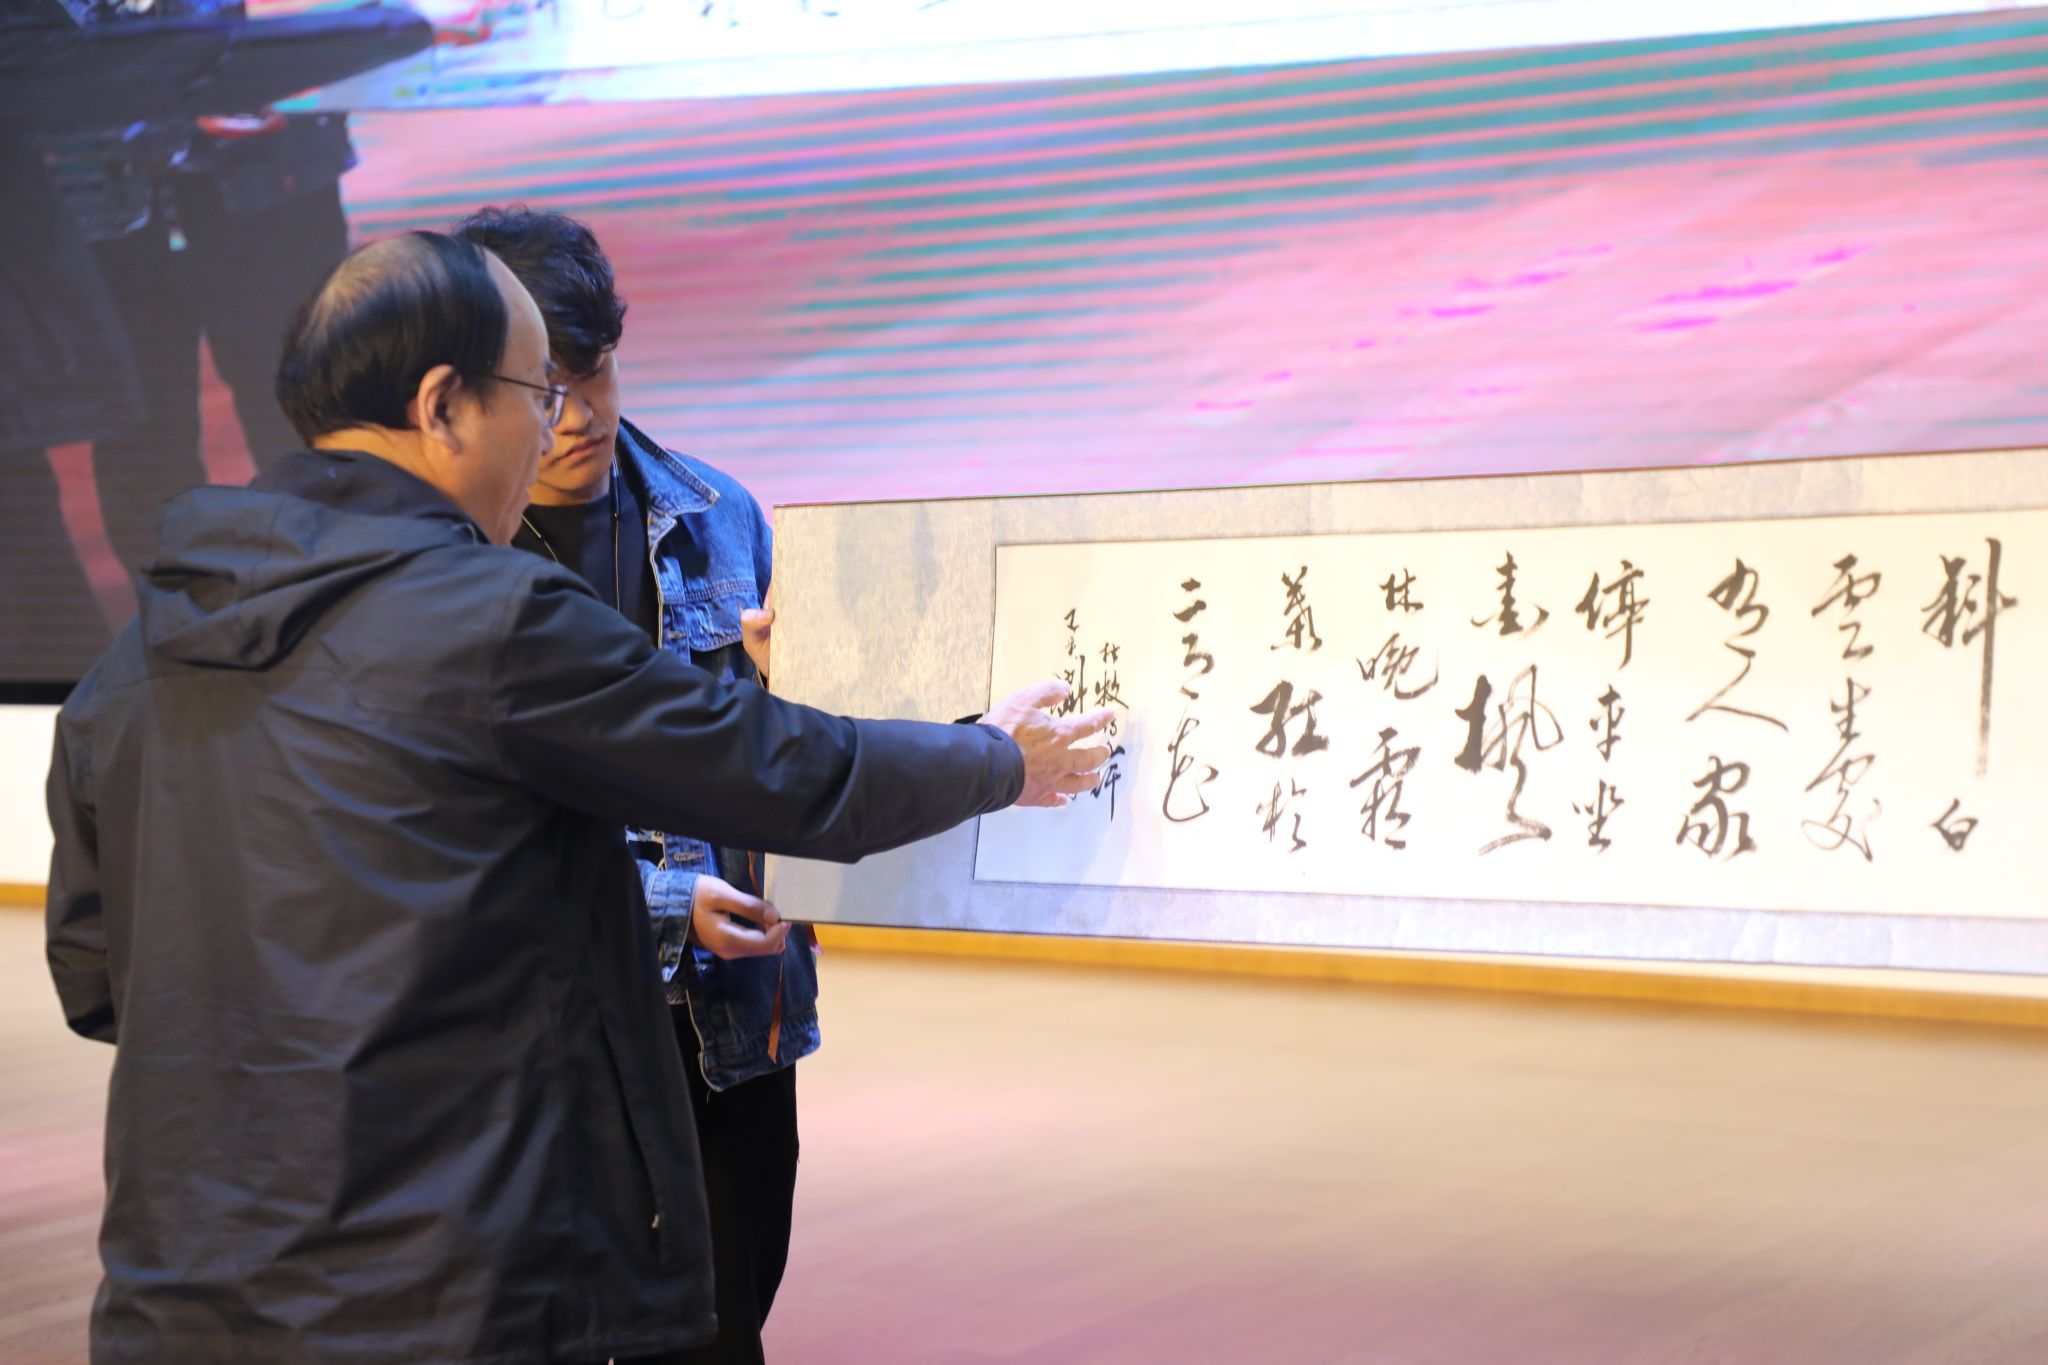 斜白
雲生處
有人家
停車坐
愛楓
林晚霜
葉紅於
二月花
杜牧詩